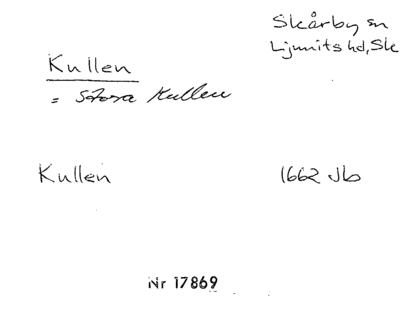 Skårby sn
Ljunits hd, Sk
Kullen
= Stora Kullen
Kullen 1662 Jb
Nr 17869